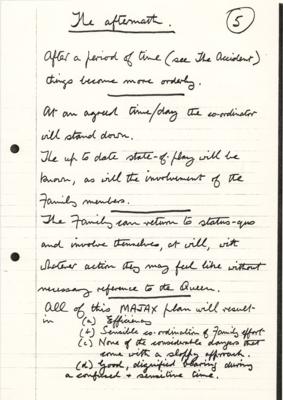 The aftermath.
5
After a period of time (see The Accident)
things become more orderly.
At an agreed time/day the co-ordinator
will stand down.
The up to date state-of-play will be
known, as will the involvement of the
Family members.
The Family can return to status-quo
and involve themselves, at will, with
whatever action they may feel like without
necessary reference to the Queen.
All of this MAJAX plan will result-
in (a) Efficiency
(b) Sensible co-ordination of Family effort
(c) None of the considerable dangers that
come with a sloppy approach.
(d) Good, dignified bearing during
a confused + sensitive time.